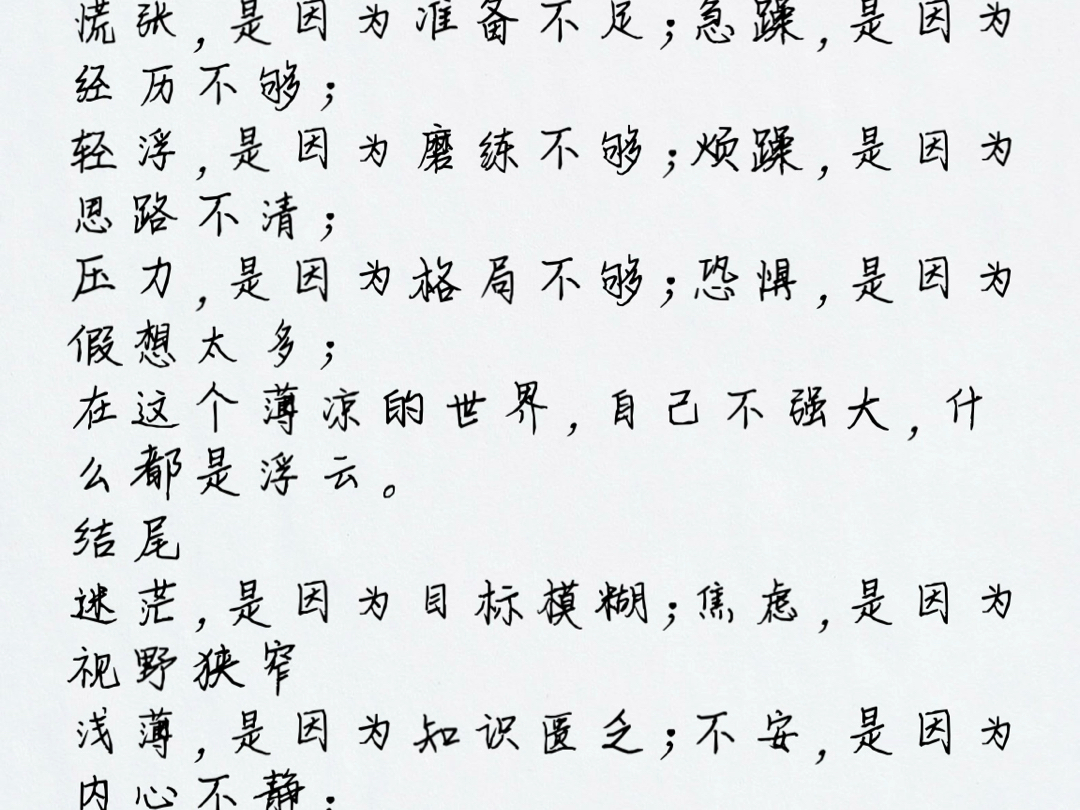 慌张,是因为准备不足;急躁,是因为
经历不够;
轻浮,是因为磨练不够;烦躁,是因为
思路不清;
压力,是因为格局不够;恐惧,是因为
假想太多;
在这个薄凉的世界,自己不强大,什
么都是浮云。
结尾
迷茫,是因为目标模糊;焦虑,是因为
视野狭窄
浅薄,是因为知识匮乏;不安,是因为
内心不静;